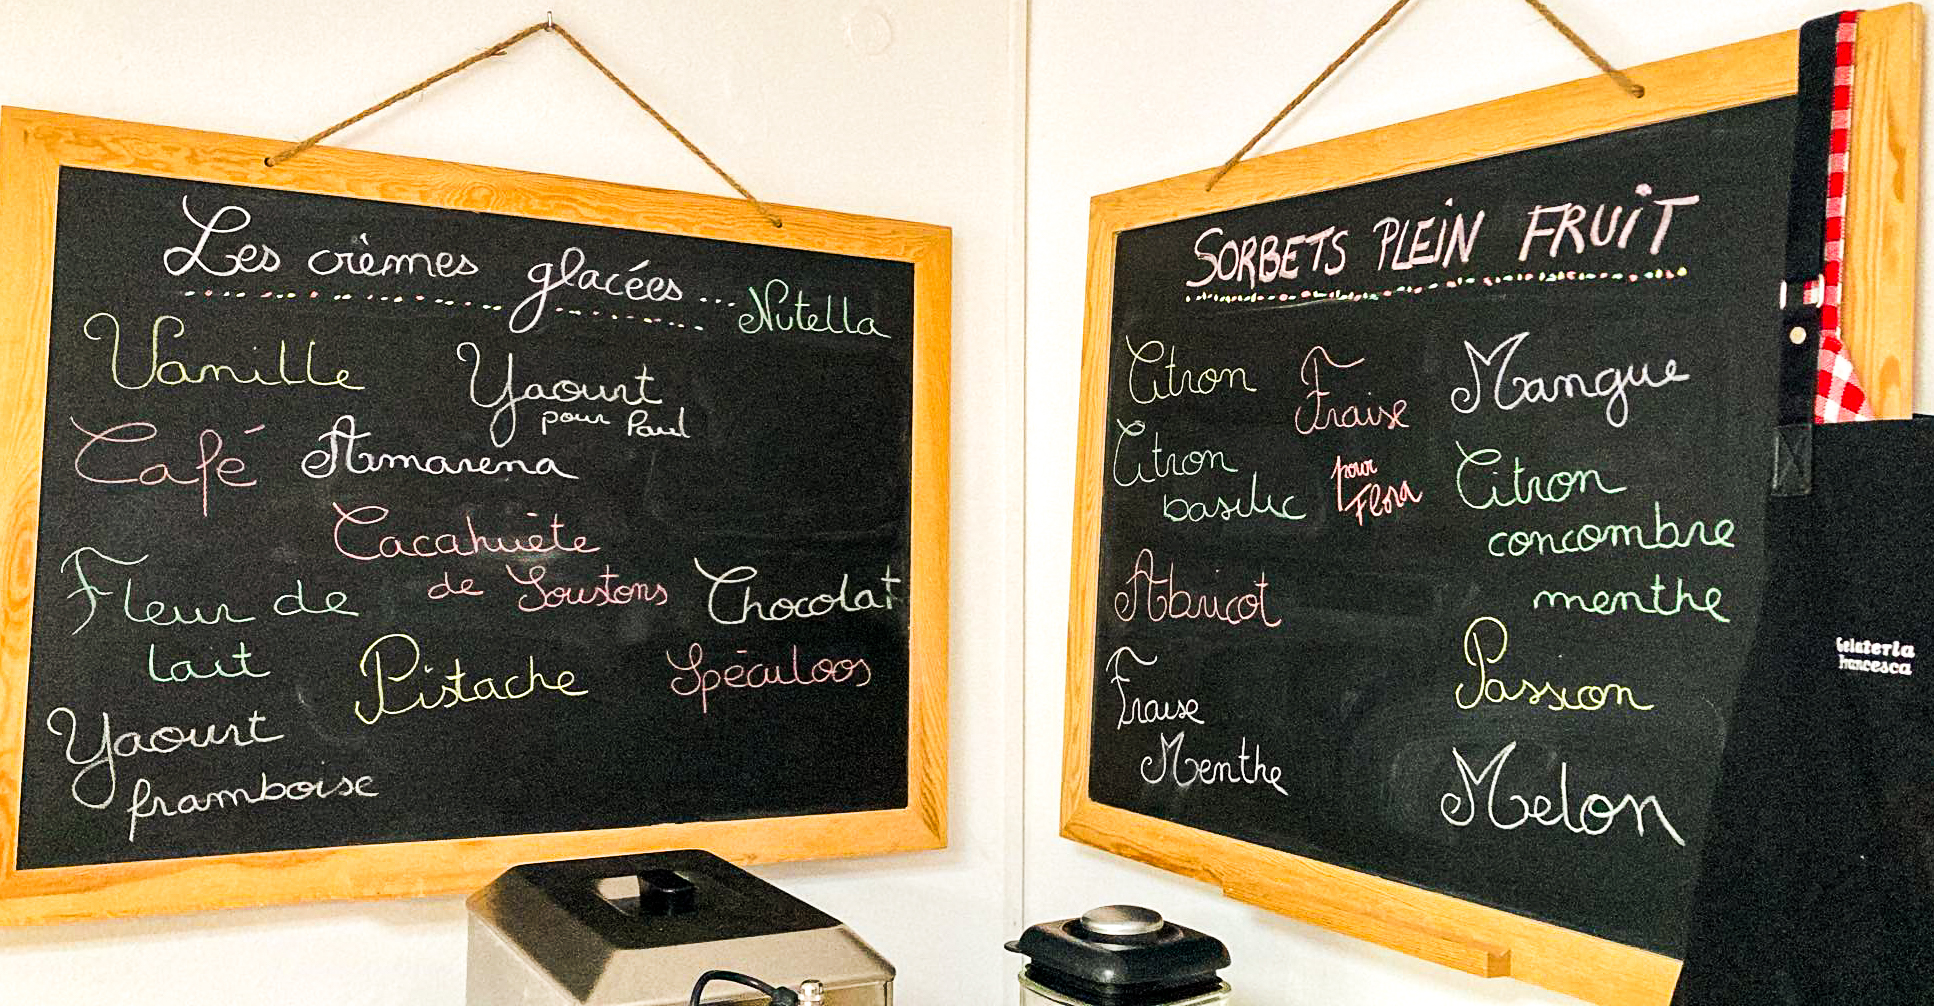 Les crèmes glacées
Nutella
Vanille
Yaourt
pour Paul
Café
Amarena
Cacahuète
de Soustons
Fleur de
lait
Chocolat
Pistache
Spéculoos
Yaourt
framboise
SORBETS PLEIN FRUIT
Citron
Fraise
pour
Flora
Mangue
Citron
basilic
Citron
concombre
menthe
Abricot
Passion
Fraise
Menthe
Melon
Gelateria
Francesca